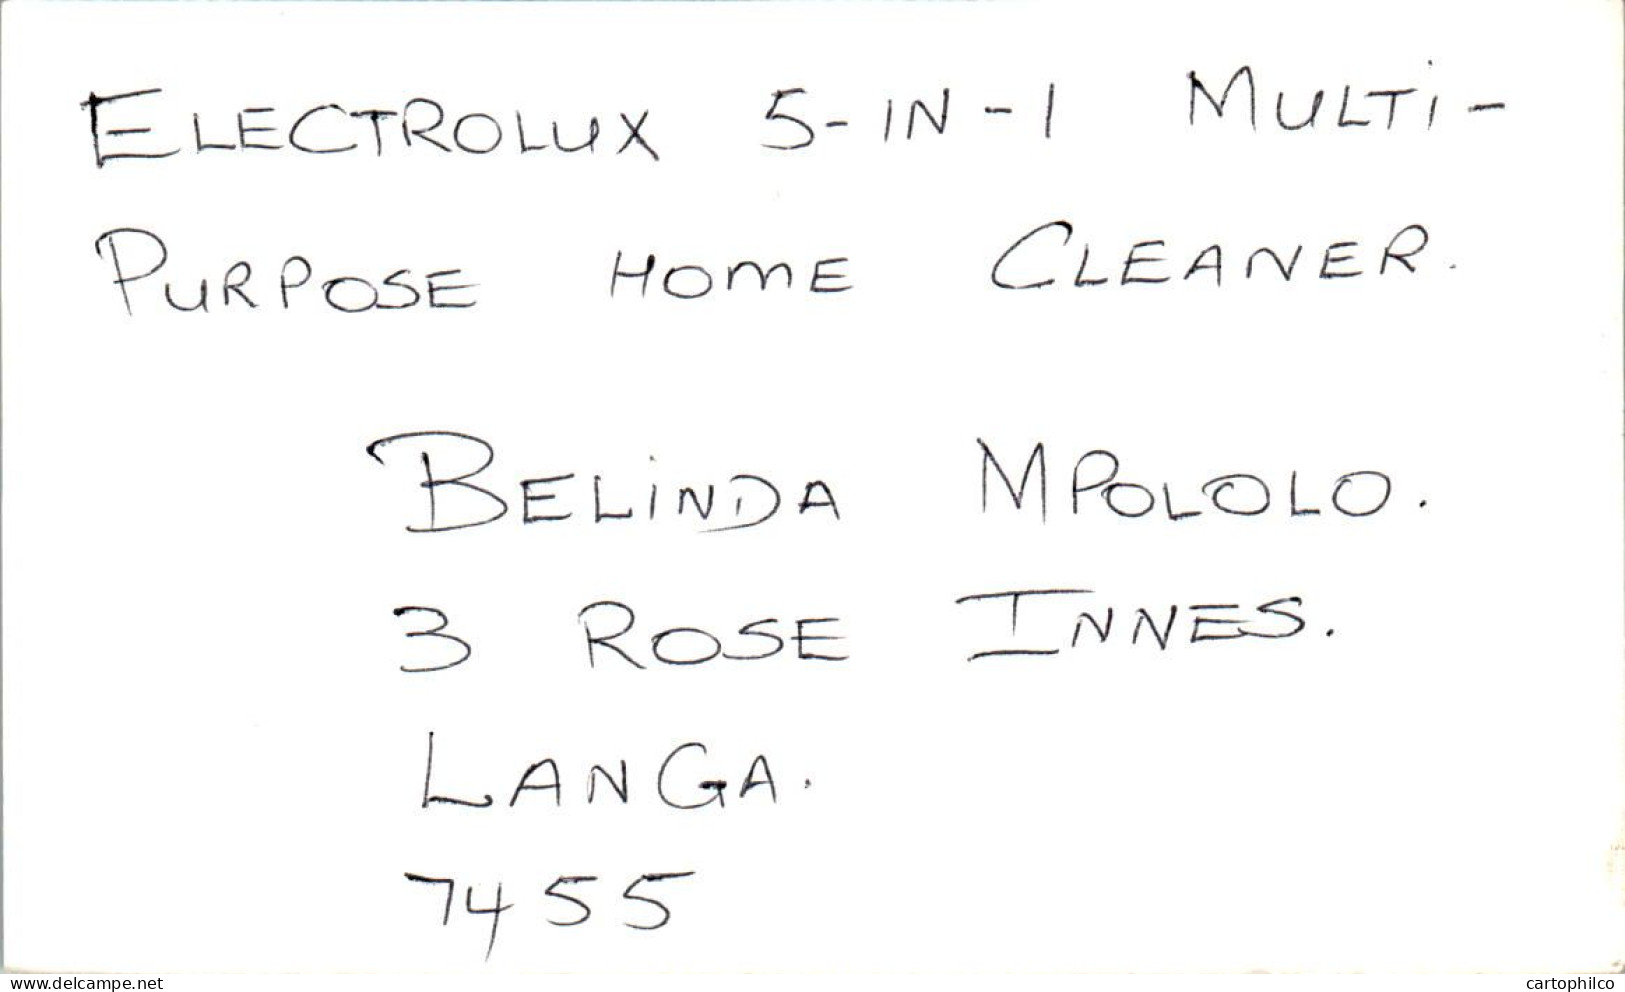 ELECTROLUX 5-IN-1 MULTI-
PURPOSE HOME CLEANER.
BELINDA MPOLOLO.
3 ROSE INNES.
LANGA.
7455
www.delcampe.net
cartophilco